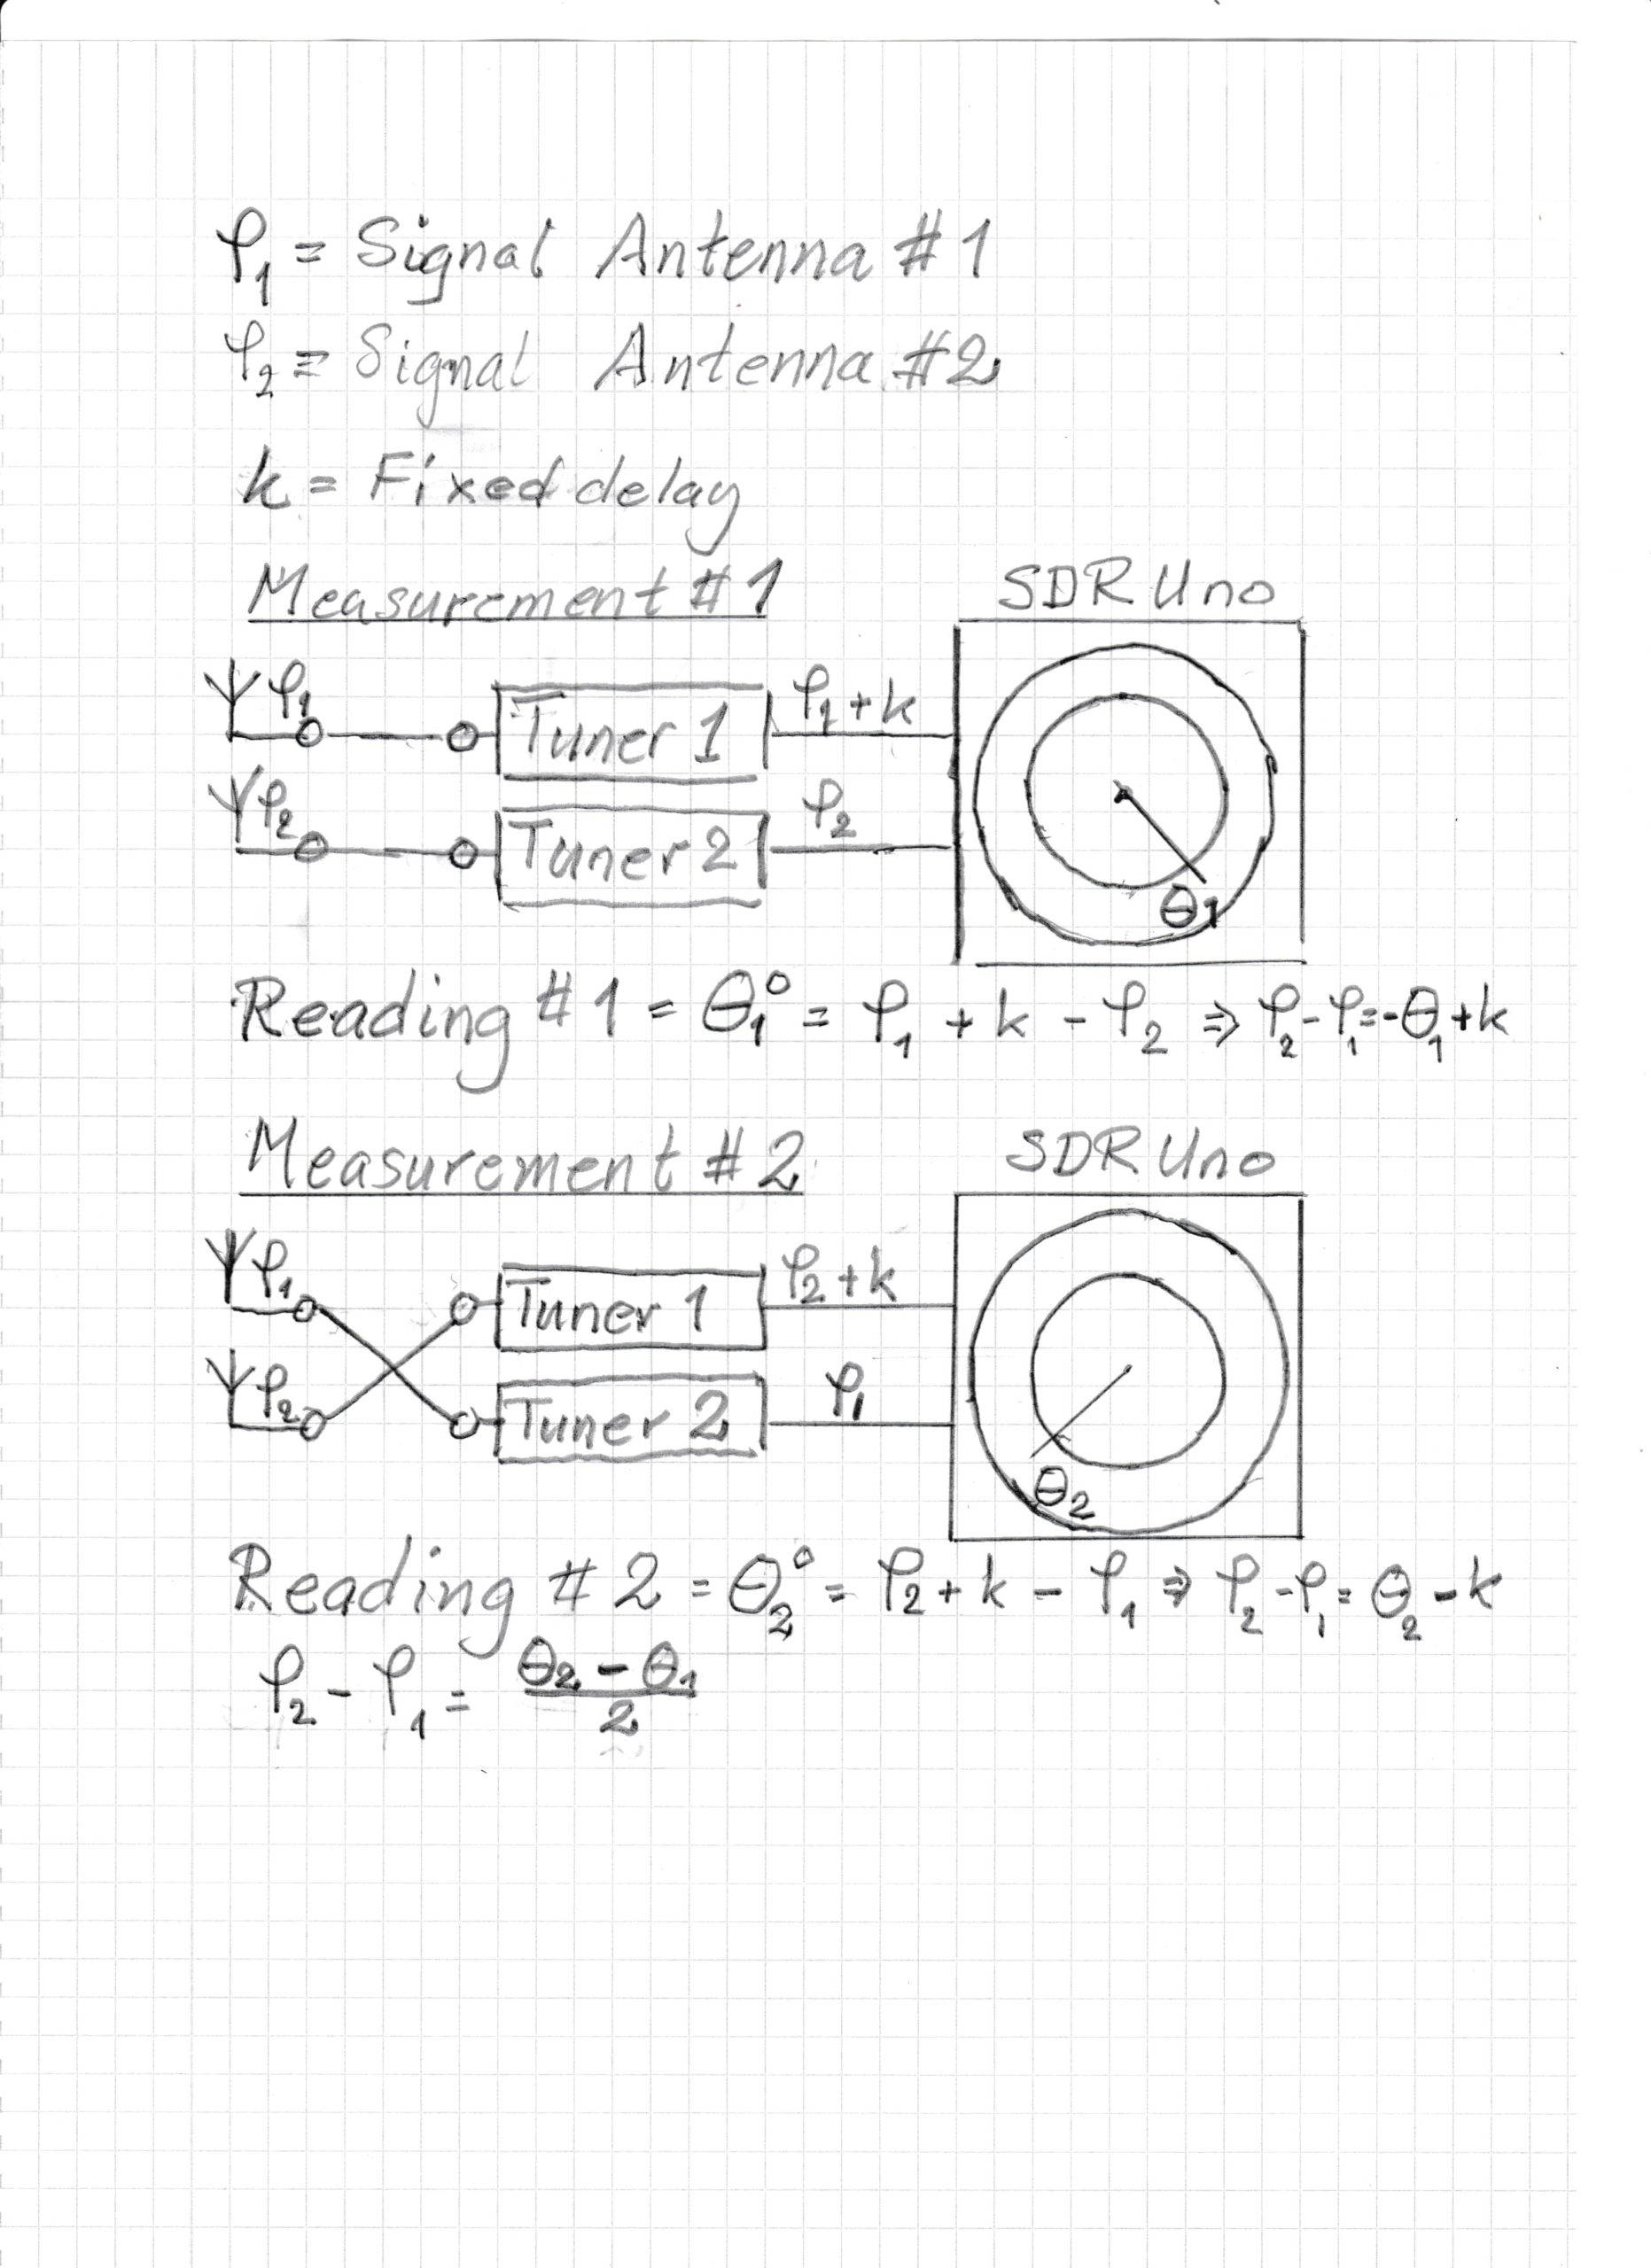 φ₁ = Signal Antenna #1
φ₂ = Signal Antenna #2
k = Fixed delay
Measurement #1
SDR Uno
φ₁
Tuner 1
φ₁+k
φ₂
Tuner 2
φ₂
θ1
Reading #1 = θ₁° = φ₁ + k - φ₂ ⇒ φ₂-φ₁=-θ₁+k
Measurement #2
SDR Uno
φ₁
Tuner 1
φ₂+k
φ₂
Tuner 2
φ₁
θ₂
Reading #2 = θ₂° = φ₂+k-φ₁ ⇒ φ₂-φ₁=θ₂-k
φ₂-φ₁= θ₂-θ₁
2